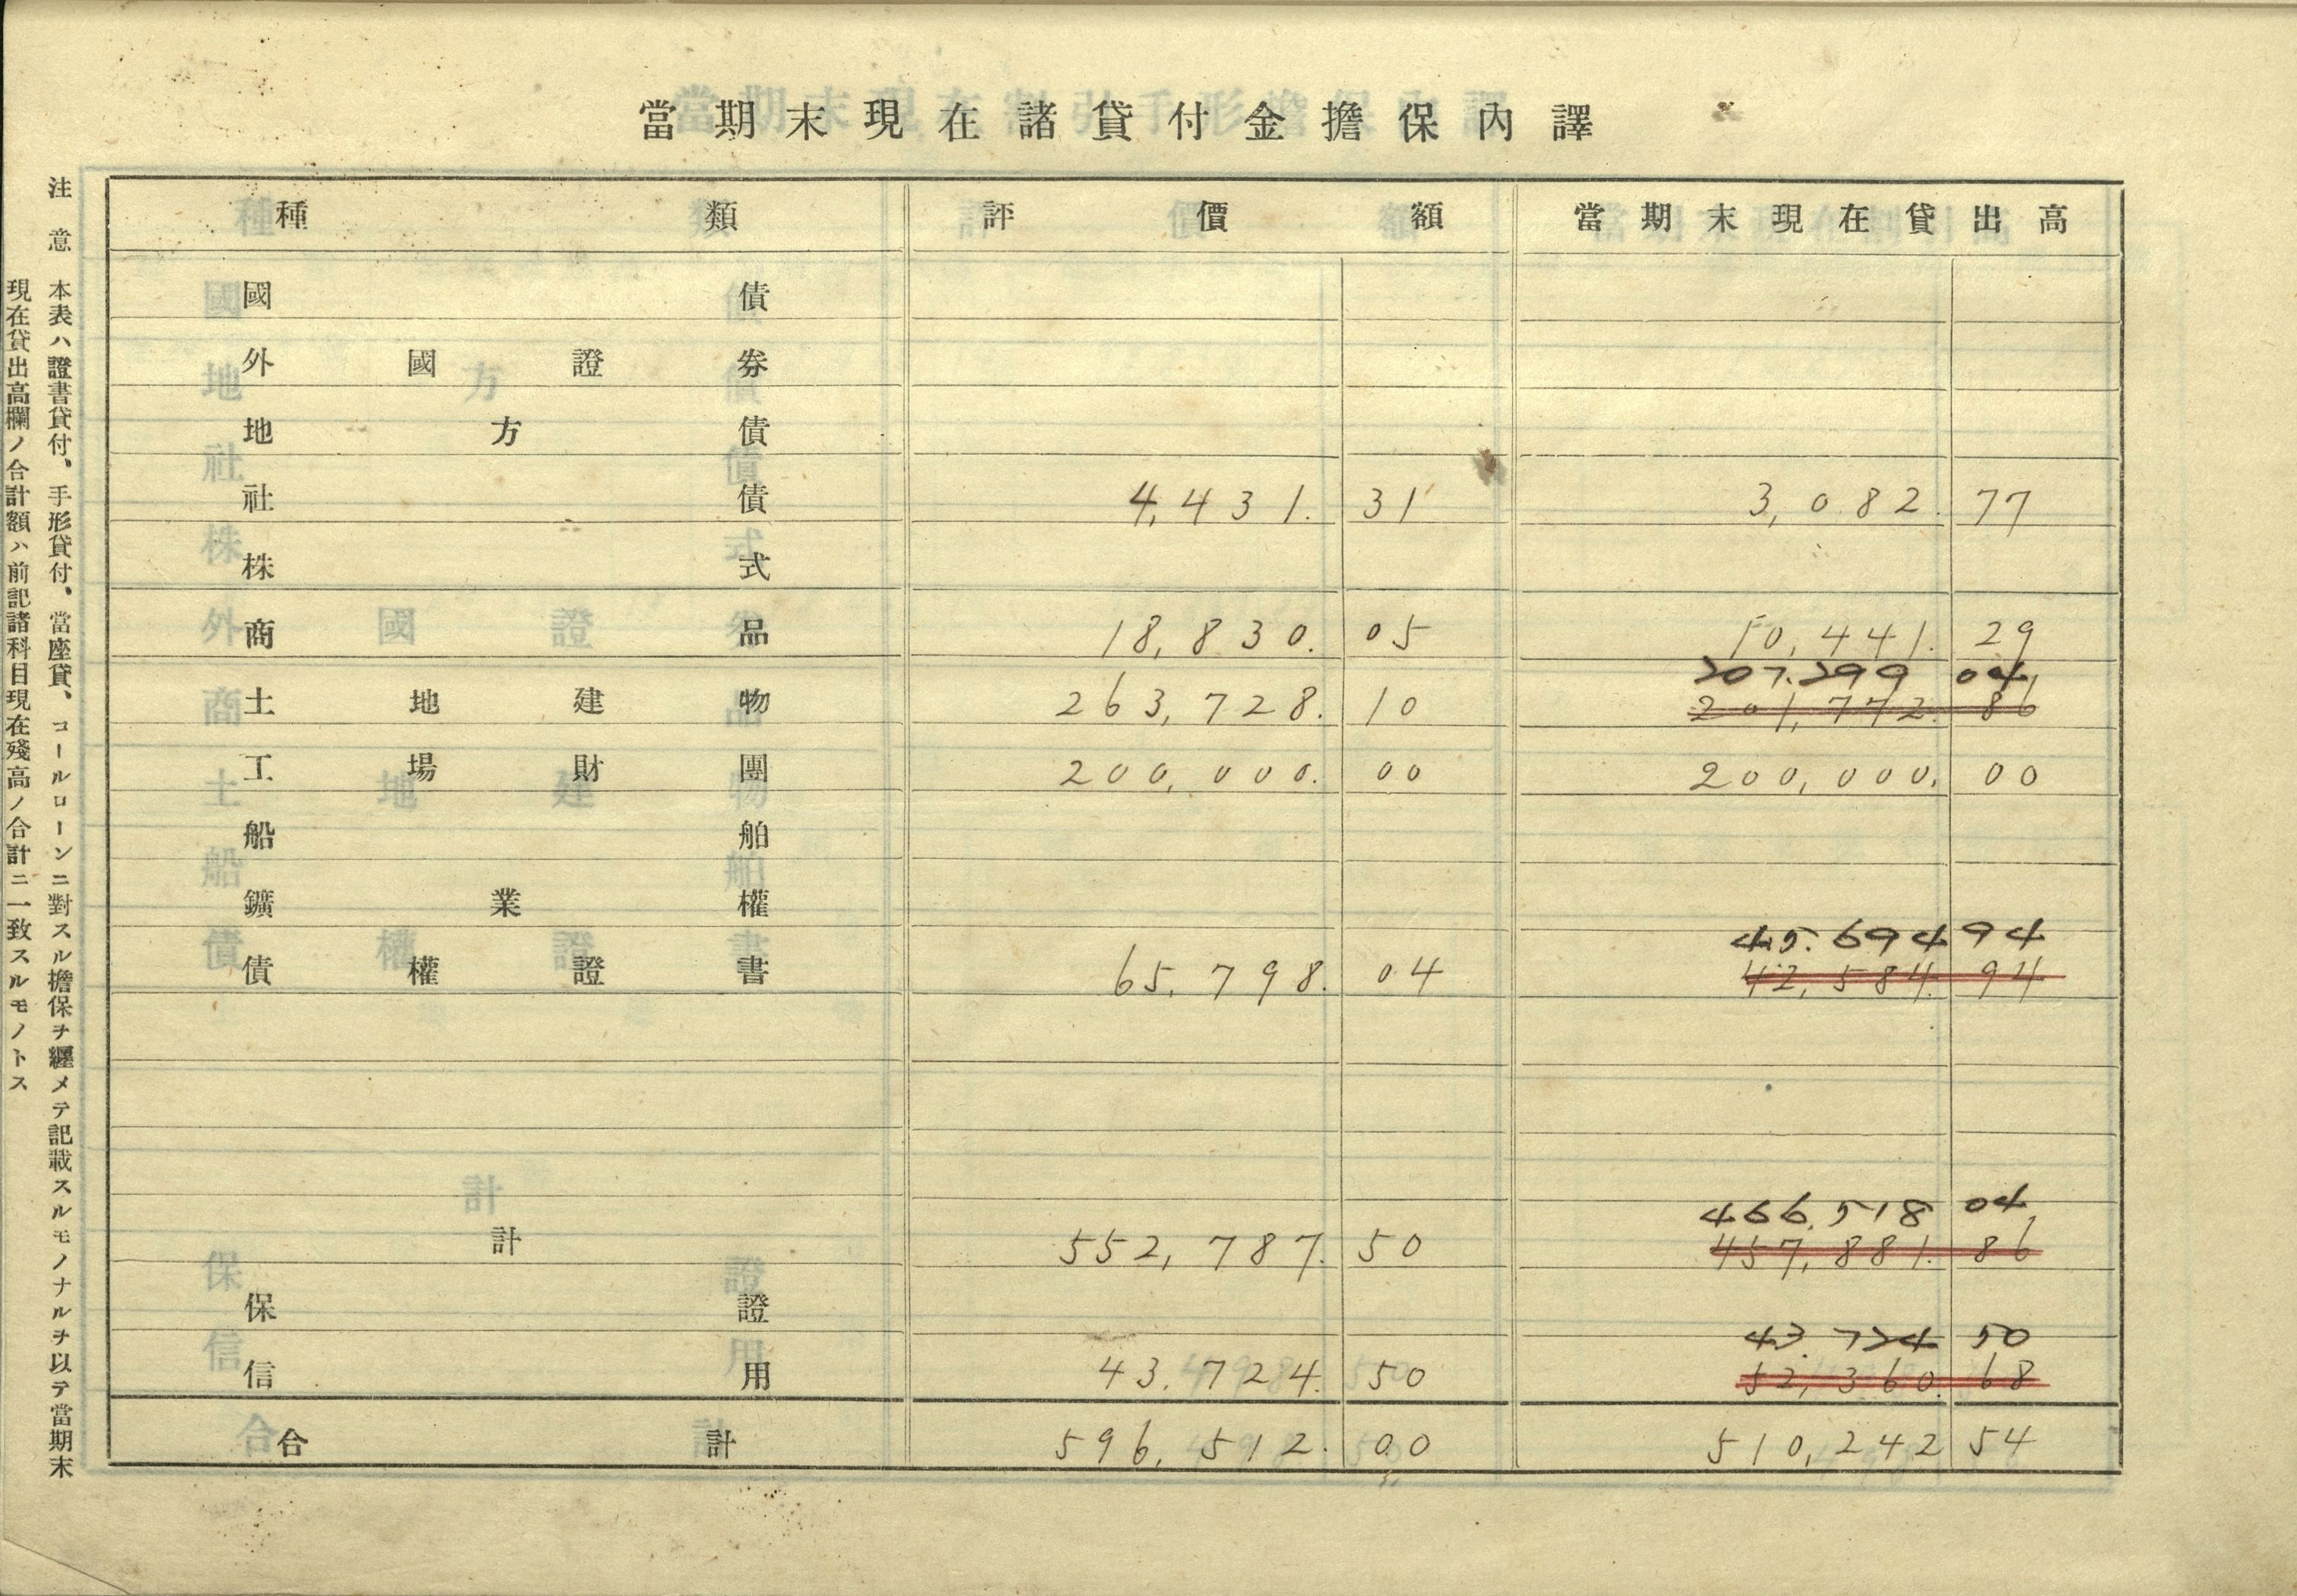 當期末現在諸貸付金擔保內譯
種類 評價額 當期末現在貸出高
國債
外國證券
地方債
社債 4,431.31 3,082.77
株式
商品 18,830.05 10,441.29
207.299 04
土地建物 263,728.10 201,772.86
工場財團 200,000.00 200,000.00
船舶
鑛業權
45.694 94
債權證書 65,798.04 42,584.94
466.518 04
計 552,787.50 457,881.86
保證
43.724 50
信用 43,724.50 52,360.68
合計 596,512.00 510,242 54
注意 本表ハ證書貸付、手形貸付、當座貸、コールローンニ對スル擔保ヲ纒メテ記載スルモノナルヲ以テ當期末
現在貸出高欄ノ合計額ハ前記諸科目現在殘高ノ合計ニ一致スルモノトス